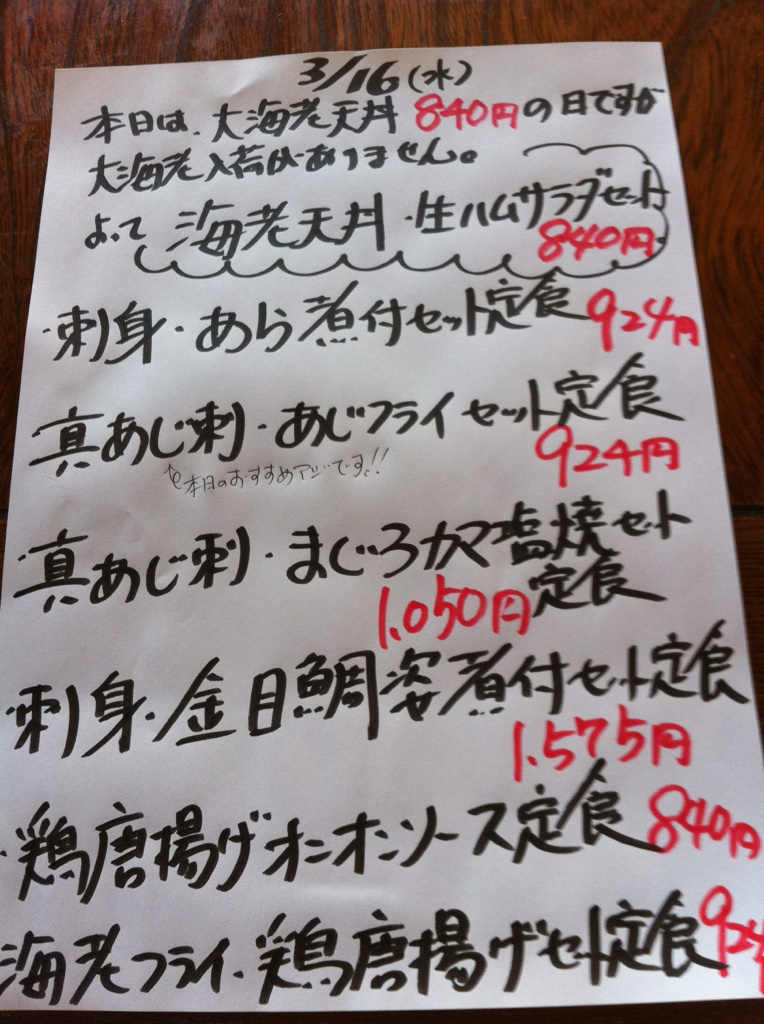 3/16(水)
本日は、大海老天丼 840円の日ですが
大海老入荷がありません。
よって 海老天丼・生ハムサラダセット
840円
・刺身・あら煮付セット定食 924円
・真あじ刺・あじフライセット定食
924円
本日のおすすめアジです!!
・真あじ刺・まぐろカマ塩焼セット
1.050円 定食
・刺身・金目鯛姿煮付セット定食
1.575円
・鶏唐揚げオニオンソース定食 840円
海老フライ・鶏唐揚げセット定食 924